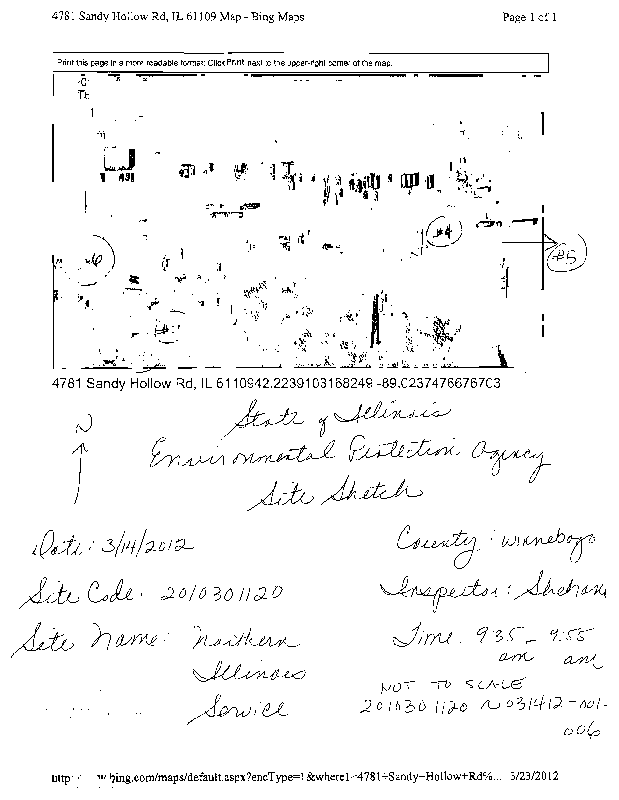 4781 Sandy Hollow Rd, IL 61109 Map - Bing Maps
Page 1 of 1
Print this page in a more readable format: Click Print next to the upper-right corner of the map.
#4
#5
#6
4781 Sandy Hollow Rd, IL 6110942.2239103168249 -89.0237476676703
N
State of Illinois
Environmental Protection Agency
Site Sketch
Date: 3/14/2012
County: Winnebago
Site Code: 2010301120
Inspector: Shehane
Site Name: Northern
Illinois
Service
Time: 935 - 9:55
am am
NOT TO SCALE
2010301120 ~ 031412-001-
006
bing.com/maps/default.aspx?encType=1&where1=4781+Sandy+Hollow+Rd%... 3/23/2012